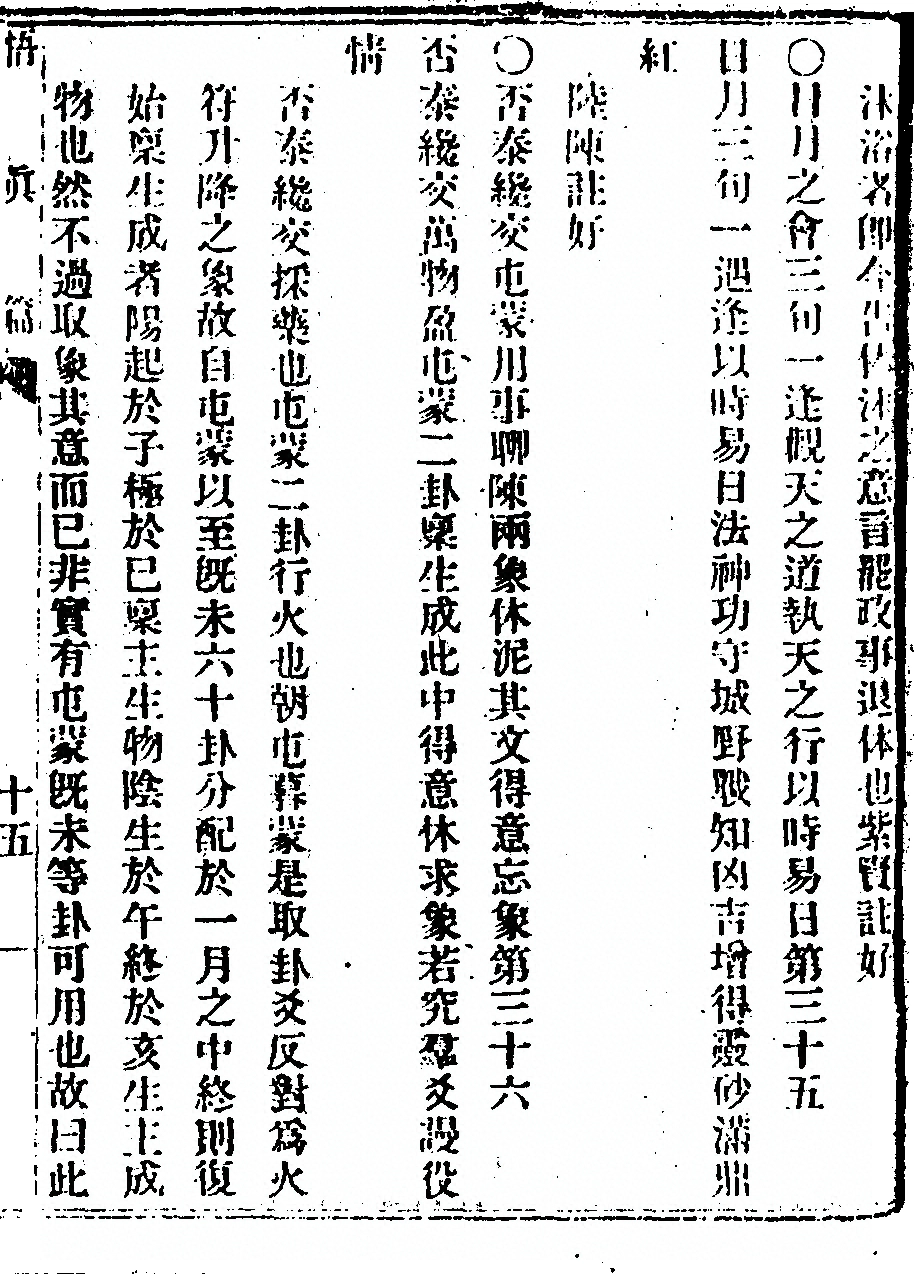 沐浴者即今告休沐之意旨罷政事退休也紫賢註好
〇日月之會三旬一逢觀天之道執天之行以時易日第三十五
日月三旬一遇逢以時易日法神功守城野戰知凶吉增得靈砂滿鼎
紅
陸陳註好
〇否泰纔交屯蒙用事聊陳兩象休泥其文得意忘象第三十六
否泰纔交萬物盈屯蒙二卦稟生成此中得意休求象若究羣爻謾役
情
否泰纔交採藥也屯蒙二卦行火也朝屯暮蒙是取卦爻反對爲火
符升降之象故自屯蒙以至旣未六十卦分配於一月之中終則復
始稟生成者陽起於子極於巳稟主生物陰生於午終於亥生主成
物也然不過取象其意而已非實有屯蒙旣未等卦可用也故曰此
悟眞篇 十五